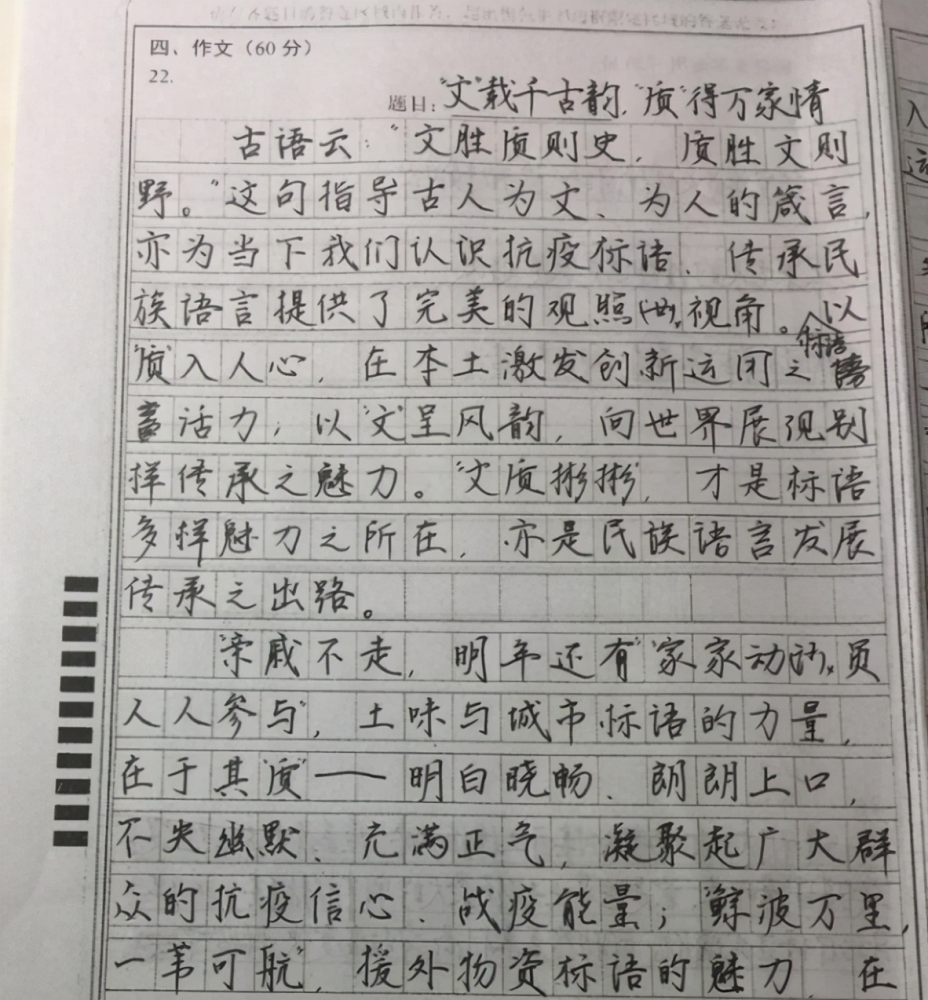 四、作文（60分）
22.
题目："文"载千古韵，"质"得万家情
古语云："文胜质则史，质胜文则
野。"这句指导古人为文、为人的箴言，
亦为当下我们认识抗疫标语、传承民
族语言提供了完美的观照视角。以
"质"入人心，在本土激发创新运用之标语
活力；以"文"呈风韵，向世界展现别
样传承之魅力。"文质彬彬"，才是标语
多样魅力之所在，亦是民族语言发展
传承之出路。
"亲戚不走，明年还有""家家动员
人人参与"，土味与城市标语的力量，
在于其"质"——明白晓畅、朗朗上口，
不失幽默、充满正气，凝聚起广大群
众的抗疫信心、战疫能量；"鲸波万里，
一苇可航"，援外物资标语的魅力，在